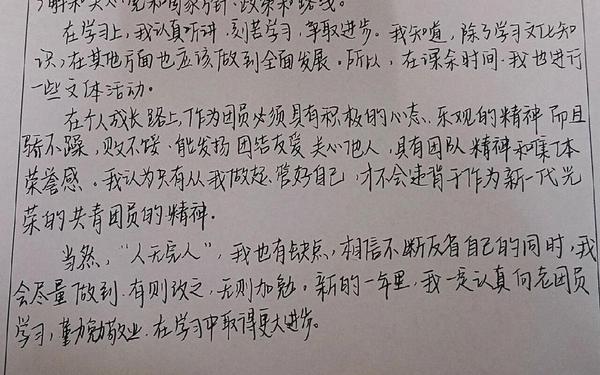 了解和关心党和国家方针、政策和路线。
在学习上,我认真听讲,刻苦学习,争取进步。我知道,除了学习文化知
识,在其他方面也应该做到全面发展。所以,在课余时间,我也进行
一些文体活动。
在个人成长路上,作为团员必须具有积极的心态、乐观的精神而且
骄不躁,败不馁、能发扬团结友爱关心他人,具有团队精神和集体
荣誉感。我认为只有从我做起、管好自己,才不会违背于作为新一代光
荣的共青团员的精神.
当然,“人无完人”,我也有缺点,相信不断反省自己的同时,我
会尽量做到.有则改之,无则加勉。新的一年里,我一定认真向老团员
学习,勤勉敬业.在学习中取得更大进步。